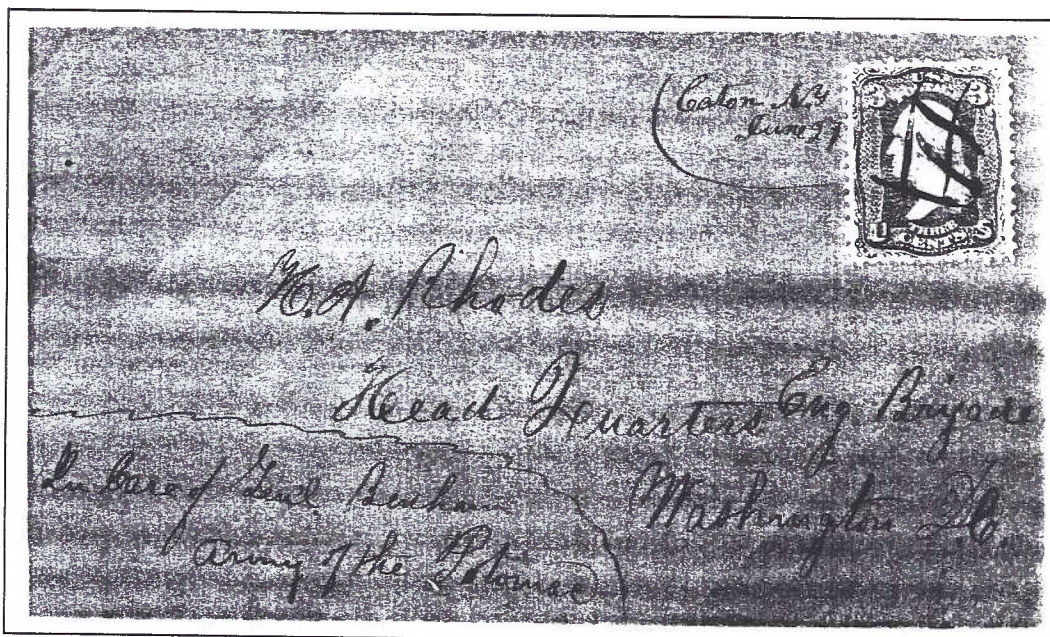 Caton N.Y
June 27
U S
3 3
THREE
CENTS
H. A. Rhodes
Head Quarters Eng Brigade
Washington D.C.
In Care of Genl Benham
Army of the Potomac